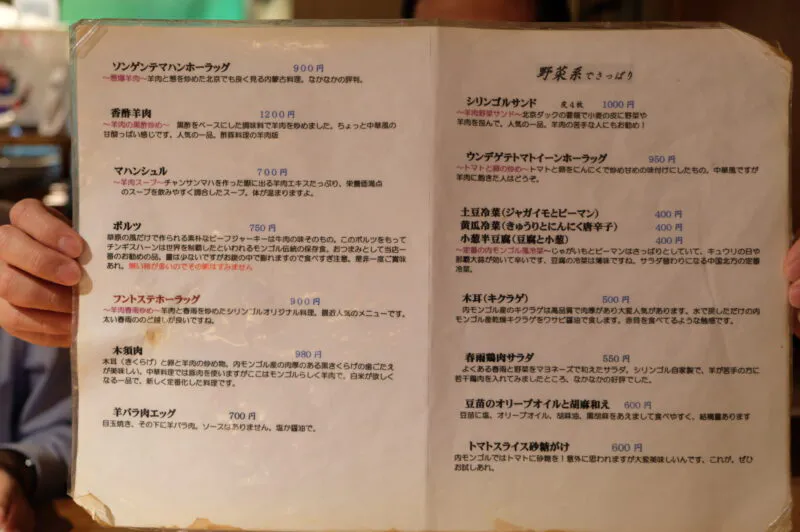 ソンゲンテマハンホーラッグ 900円
～葱爆羊肉～羊肉と葱を炒めた北京でも良く見る内蒙古料理。なかなかの評判。
香酢羊肉 1200円
～羊肉の黒酢炒め～ 黒酢をベースにした調味料で羊肉を炒めました。ちょっと中華風の
甘酸っぱい感じです、人気の一品。酢豚料理の羊肉版
マハンシュル 700円
～羊肉スープ～チャンサンマハを作った際に出る羊肉エキスたっぷり、栄養価満点
のスープを飲みやすく調合したスープ。体が温まりますよ。
ボルツ 750円
草原の風だけで作られる素朴なビーフジャーキーは牛肉の味そのもの。このボルツをもって
チンギスハーンは世界を制覇したといわれるモンゴル伝統の保存食。おつまみとして当店一
番のお勧めの品。量は少ないですがお腹の中で膨れますので食べすぎ注意。是非一度ご賞味
あれ。無い時が多いのでその際はすみません
フントステホーラッグ 900円
～羊肉春雨炒め～羊肉と春雨を炒めたシリンゴルオリジナル料理。最近人気のメニューです。
太い春雨ののど越しが良いですね。
木須肉 980円
木耳（きくらげ）と卵と羊肉の炒め物。内モンゴル産の肉厚のある黒きくらげの歯ごたえ
が美味しい。中華料理では豚肉を使いますがここはモンゴルらしく羊肉で、白米が欲しく
なる一品で、新しく定番化した料理です。
羊バラ肉エッグ 700円
目玉焼き、その下に羊バラ肉。ソースはありません。塩か醤油で。
野菜系でさっぱり
シリンゴルサンド 皮4枚 1000円
～羊肉野菜サンド～北京ダックの要領で小麦の皮に野菜や
羊肉を包んで、人気の一品。羊肉の苦手な人にもお勧め！
ウンデゲテトマトイーンホーラッグ 950円
～トマトと卵の炒め～トマトと卵をにんにくで炒め甘めの味付けにしたもの。中華風ですが
羊肉に飽きた人はどうぞ。
土豆冷菜（ジャガイモとピーマン） 400円
黄瓜冷菜（きゅうりとにんにく唐辛子） 400円
小葱半豆腐（豆腐と小葱） 400円
～定番の内モンゴル風冷菜～じゃがいもとピーマンはさっぱりとしていて、キュウリの日や
那覇大蒜が効いて辛いです、豆腐の冷菜は薄味ですね。サラダ替わりになる中国北方の定番
冷菜。
木耳（キクラゲ） 500円
内モンゴル産のキクラゲは高品質で肉厚があり大変人気があります。水で戻しただけの内
モンゴル産乾燥キクラゲをワサビ醤油で食します。赤貝を食べてるような触感です。
春雨鶏肉サラダ 550円
よくある春雨と野菜をマヨネーズで和えたサラダ。シリンゴル自家製で、羊が苦手の方に
若干鶏肉を入れてみましたところ、なかなかの好評でした。
豆苗のオリーブオイルと胡麻和え 600円
豆苗に塩、オリーブオイル、胡麻油、黒胡麻をあえまして食べやすく、結構量あります
トマトスライス砂糖がけ 600円
内モンゴルではトマトに砂糖を！意外に思われますが大変美味しいんです、これが。ぜひ
お試しあれ。